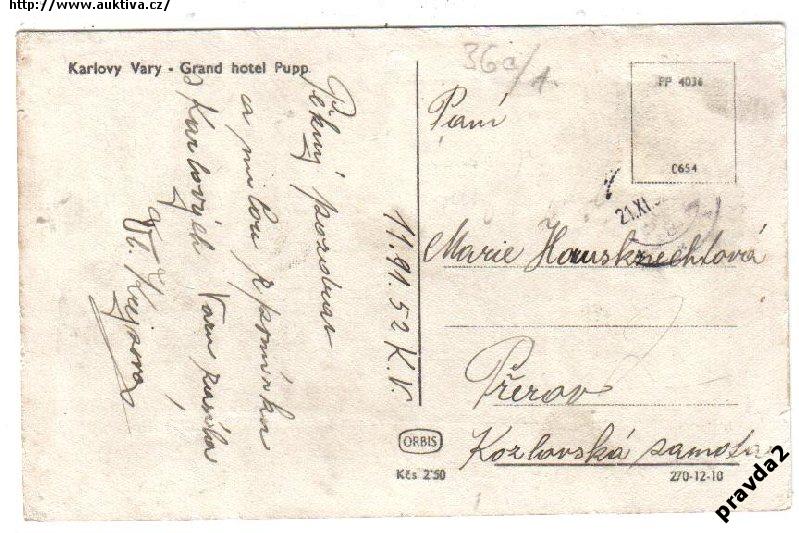 http://www.auktiva.cz/
Karlovy Vary - Grand hotel Pupp
36a/1.
PP 4036
C654
Paní
21.XI.5
Pěkný pozdrav
a milou vzpomínku
z Karlových Varů zasílá
11.91.52 K.V.
Marie Hausknechtová
Přerov
Kozlovská samota
ORBIS
Kčs 2'50
270-12-10
pravda2